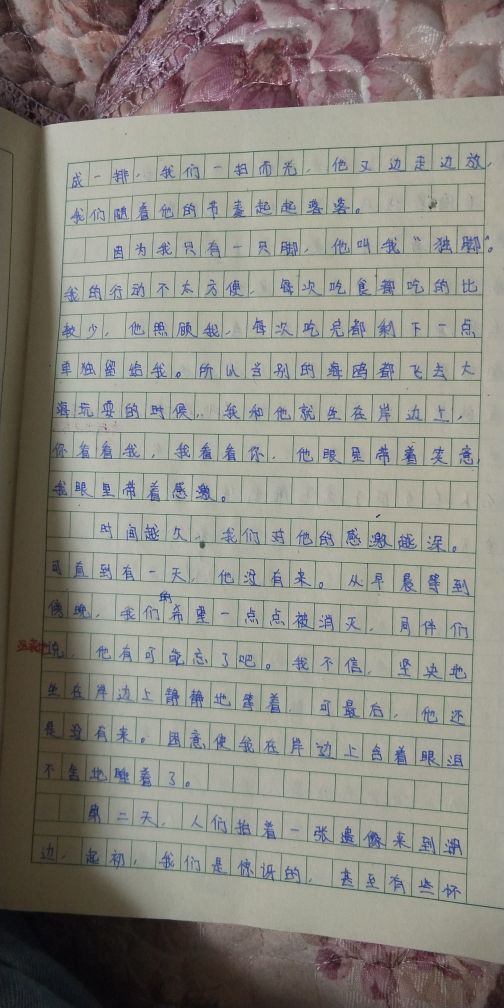 成一排，我们一扫而光，他又边走边放，
我们随着他的节奏起起落落。
因为我只有一只脚，他叫我“独脚”。
我的行动不太方便，每次吃食都吃的比
较少，他照顾我，每次吃完都剩下一点
单独留给我。所以当别的海鸥都飞去大
海玩耍的时候，我和他就坐在岸边上，
你看看我，我看看你，他眼里带着笑意，
我眼里带着感激。
时间越久，我们对他的感激越深。
可直到有一天，他没有来。从早晨等到
傍晚，我们的希望一点点被消灭，同伴们
说，他有可能忘了吧。我不信，坚决地
坐在岸边上静静地等着，可最后，他还
是没有来。困意使我在岸边上含着眼泪
不舍地睡着了。
第二天，人们抬着一张遗像来到湖
边，起初，我们是惊讶的，甚至有些怀